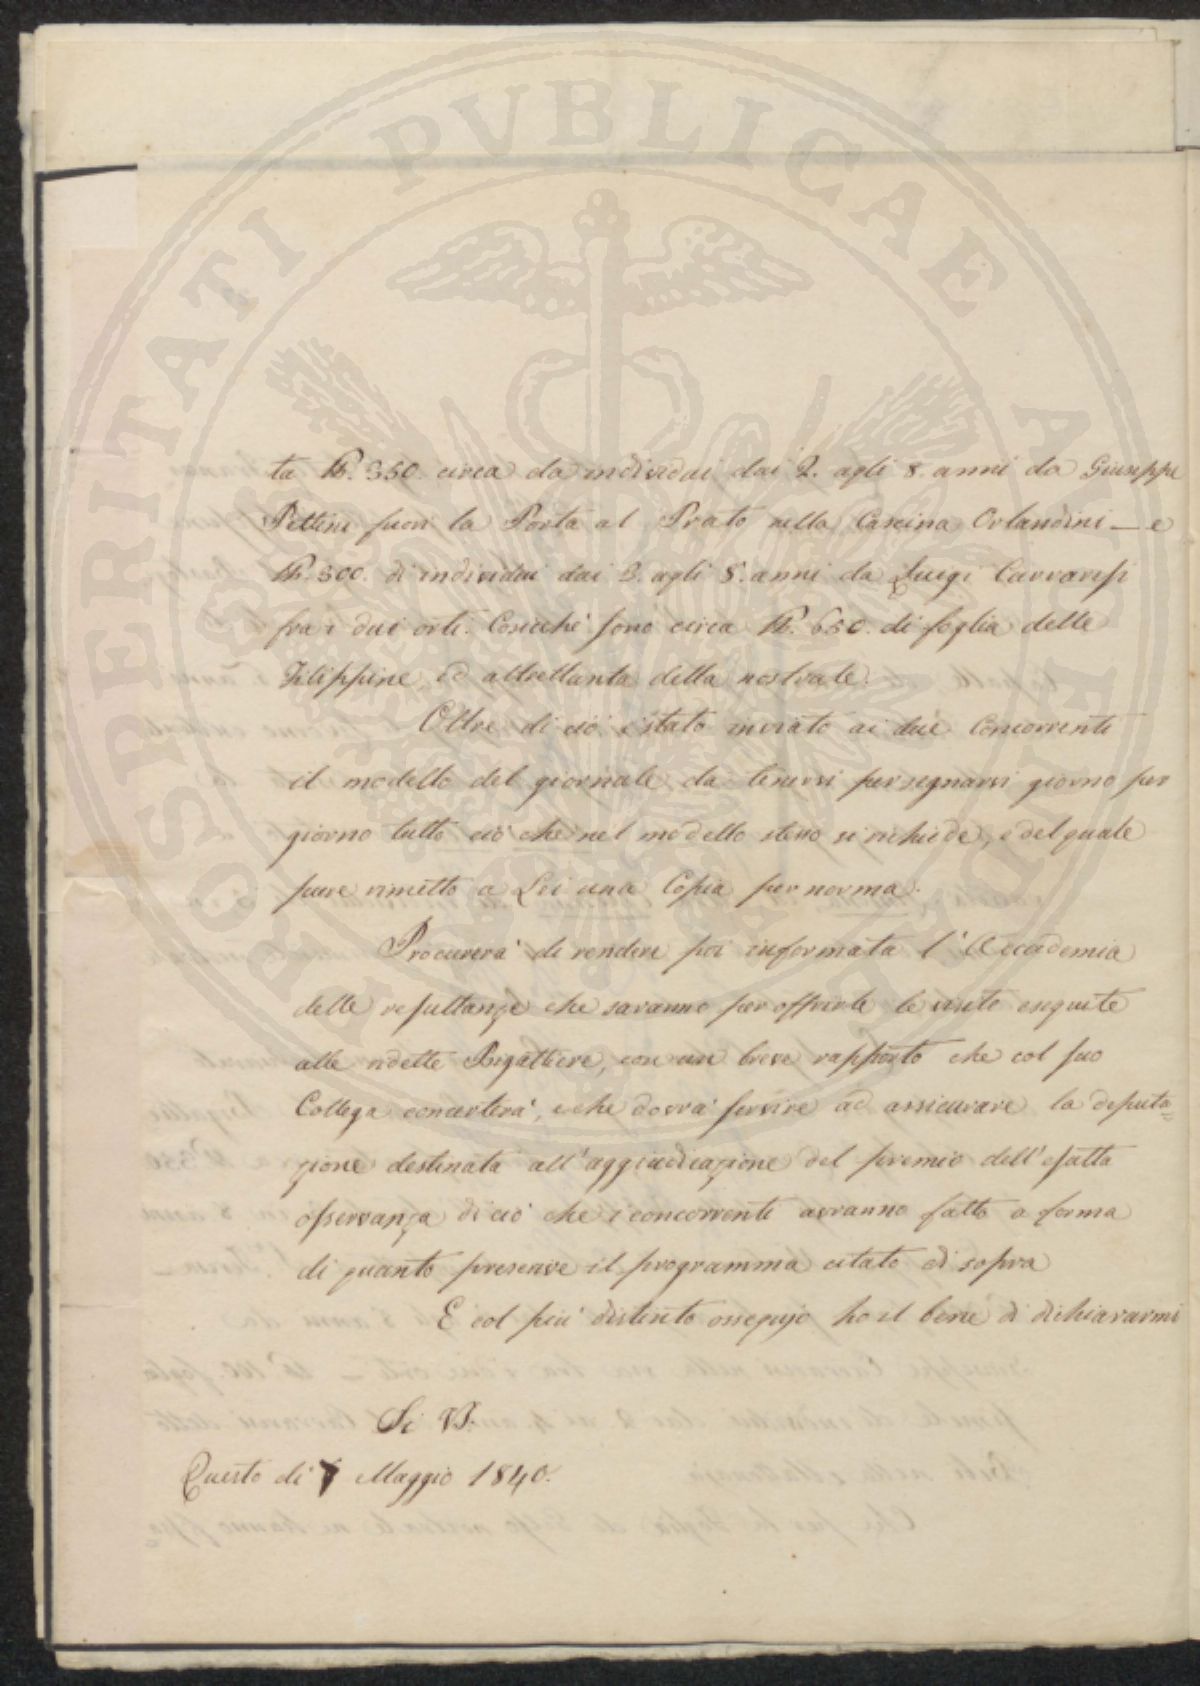 PROSPERITATI PVBLICAE AVGENDAE
ta ℔. 350. circa da individui dai 2. agli 8. anni da Giuseppe
Pettini fuori la Porta al Prato nella Cascina Orlandini — e
℔. 300. di individui dai 3. agli 8. anni da Luigi Carraresi
fra i due orti. Cosicche' sono circa ℔. 650. di foglia delle
Filippine, ed altrettanta della nostrale.
Oltre di ciò è stato inviato ai due Concorrenti
il modello del giornale da tenersi per segnarvi giorno per
giorno tutto ciò che nel modello stesso si richiede, e del quale
pure rimetto a Lei una Copia per norma.
Procurerà di rendere poi informata l'Accademia
delle resultanze che saranno per offrirle le visite eseguite
alle ridette Bigattiere, con un breve rapporto che col suo
Collega concerterà, e che dovrà servire ad assicurare la deputa=
zione destinata all'aggiudicazione del premio dell'esatta
osservanza di ciò che i concorrenti avranno fatto a forma
di quanto prescrive il programma citato di sopra
E col più distinto ossequio ho il bene di dichiararmi
Di V.
Questo dì 7 Maggio 1840.